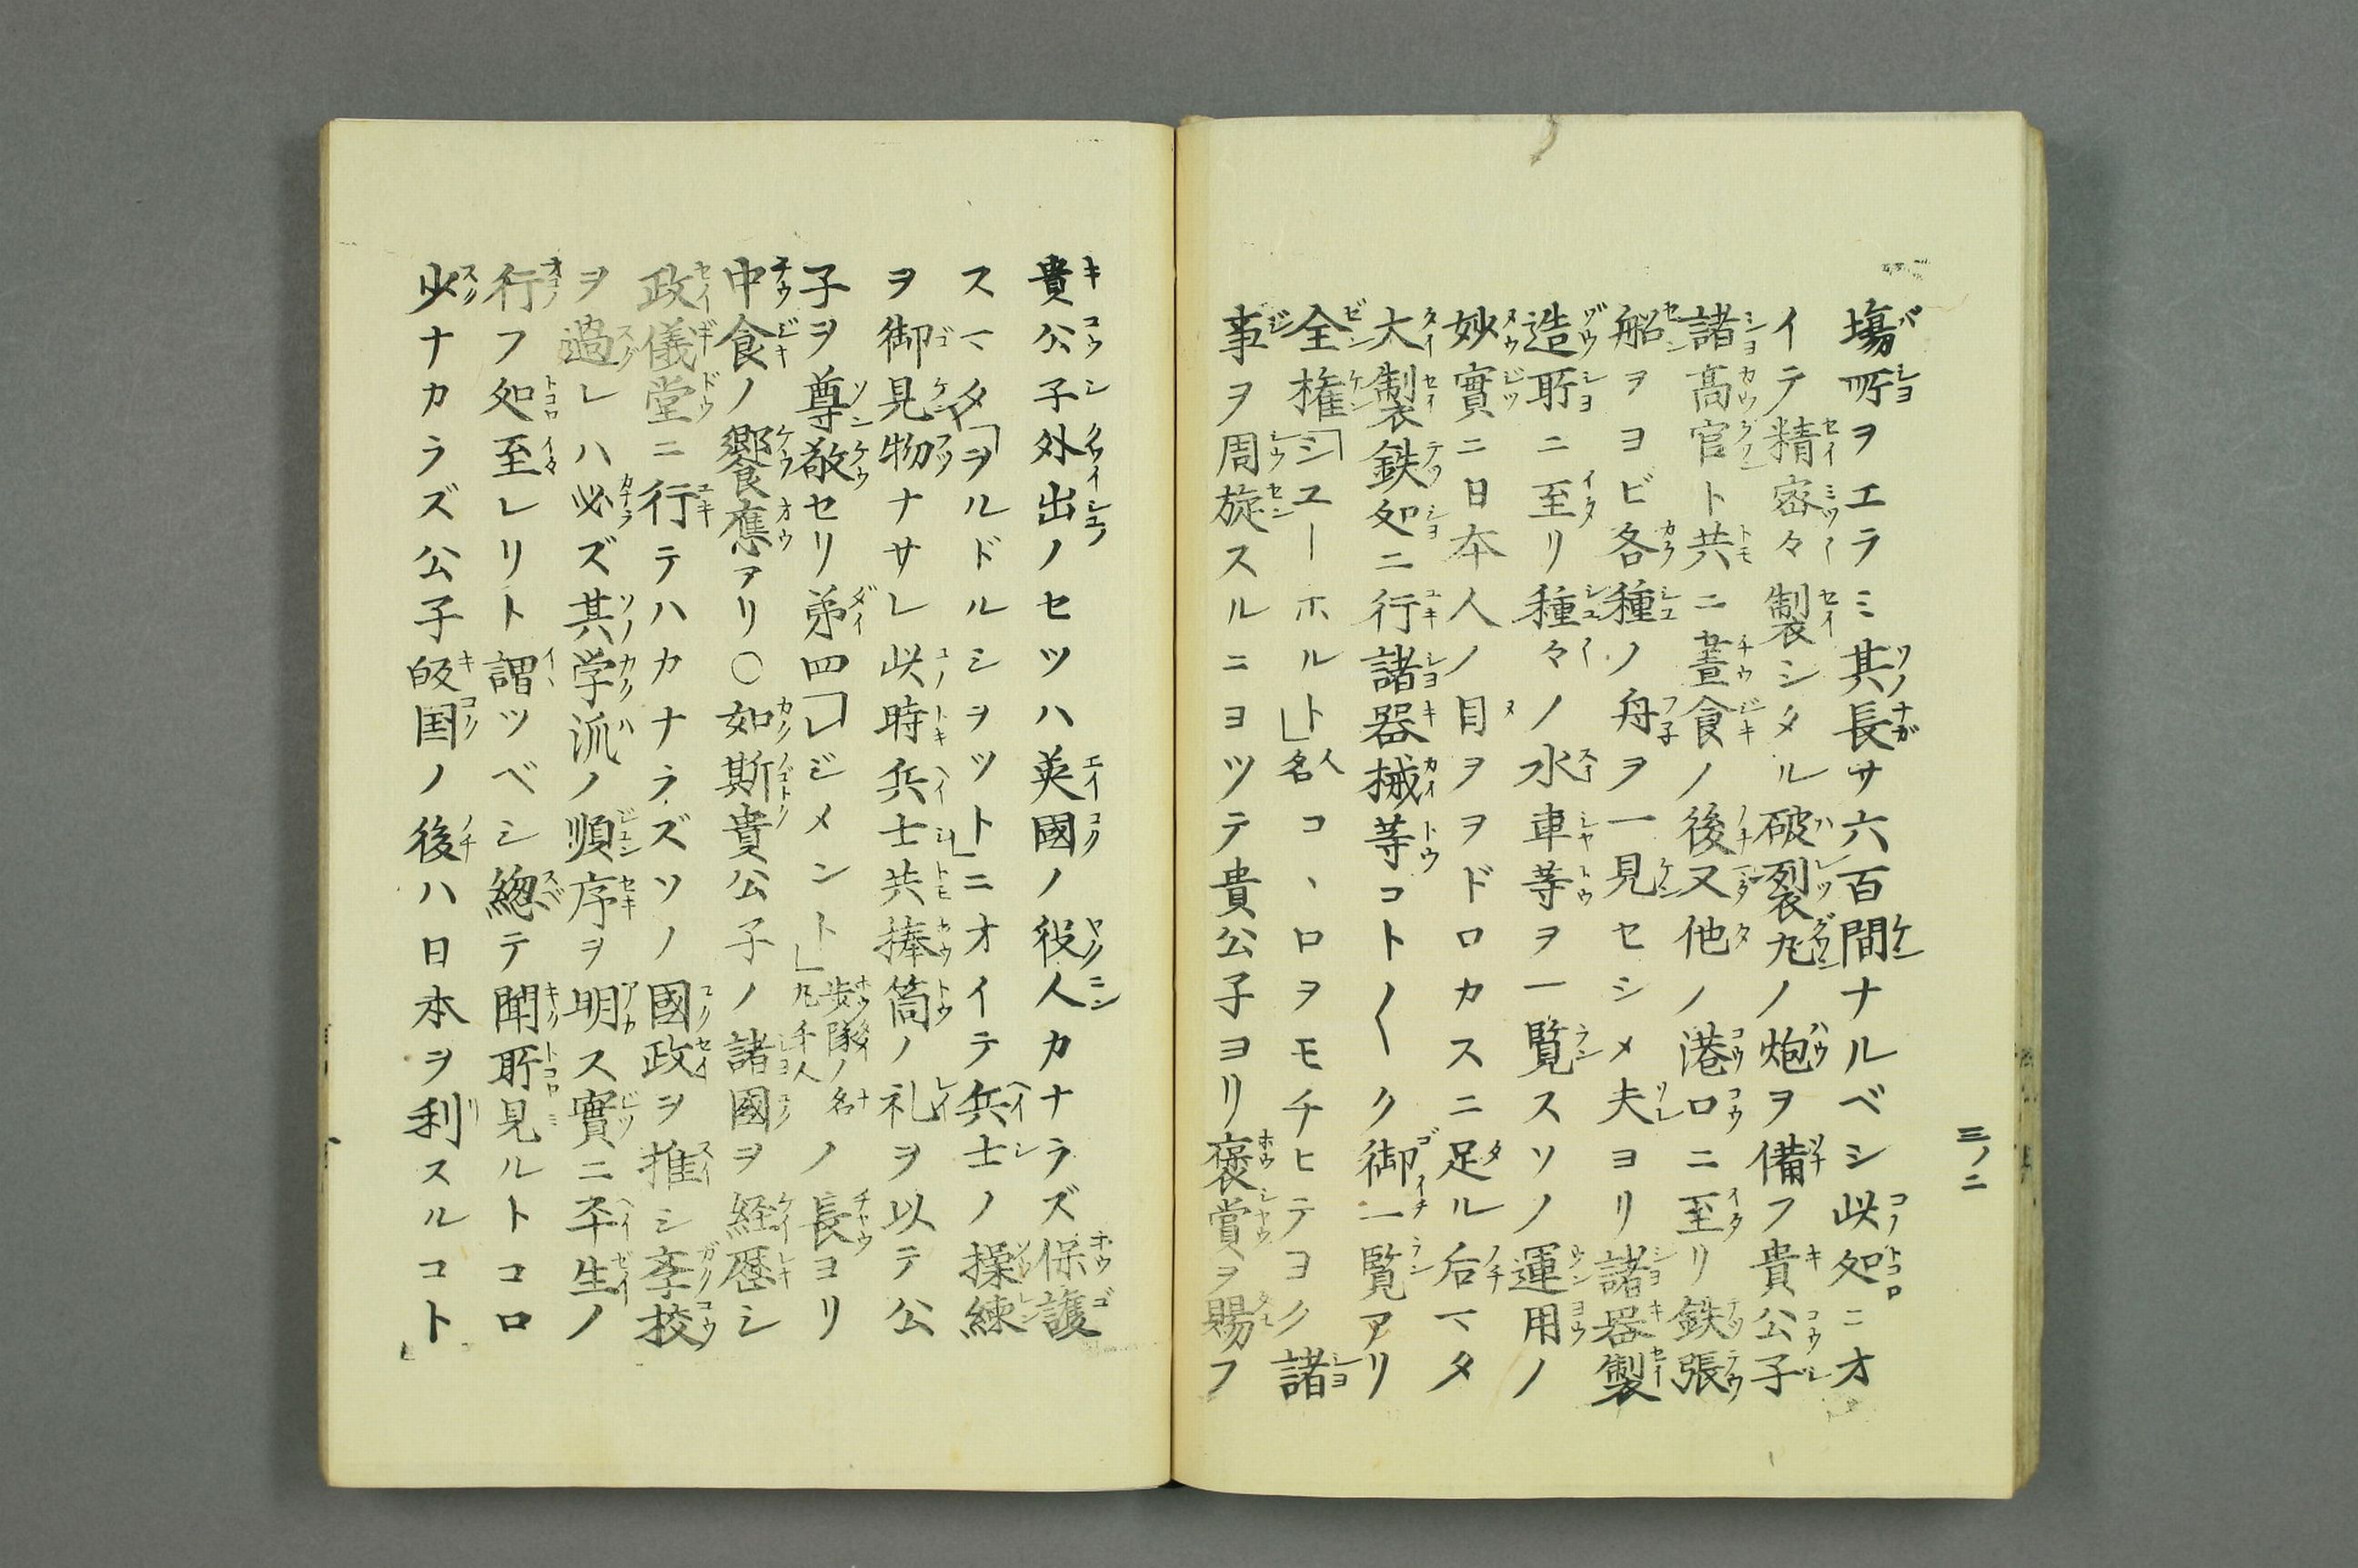 塲所ヲエラミ其長サ六百間ナルベシ此処ニオ
イテ精密々製シタル破裂丸ノ炮ヲ備フ貴公子
諸髙官ト共ニ晝食ノ後又他ノ港口ニ至リ鉄張
船ヲヨビ各種ノ舟ヲ一見セシメ夫ヨリ諸器製
造所ニ至リ種々ノ水車等ヲ一覧スソノ運用ノ
妙實ニ日本人ノ目ヲドロカスニ足ル后マタ
大製鉄処ニ行諸器械等コト〱ク御一覧アリ
全権「シユーホルト」人名コヽロヲモチヒテヨク諸
事ヲ周旋スルニヨツテ貴公子ヨリ褒賞ヲ賜フ
三ノ二
貴公子外出ノセツハ英國ノ役人カナラズ保護
スマタ「ヲルドルシヲツト」ニオイテ兵士ノ操練
ヲ御見物ナサレ此時兵士共捧筒ノ礼ヲ以テ公
子ヲ尊敬セリ弟四「レジメント」歩隊ノ名凡千人ノ長ヨリ
中食ノ饗應アリ〇如斯貴公子ノ諸國ヲ経歴シ
政儀堂ニ行テハカナラズソノ國政ヲ推シ斈校
ヲ過レハ必ズ其学派ノ順序ヲ明ス實ニ平生ノ
行フ処至レリト謂ツベシ総テ聞所見ルトコロ
少ナカラズ公子皈国ノ後ハ日本ヲ利スルコト